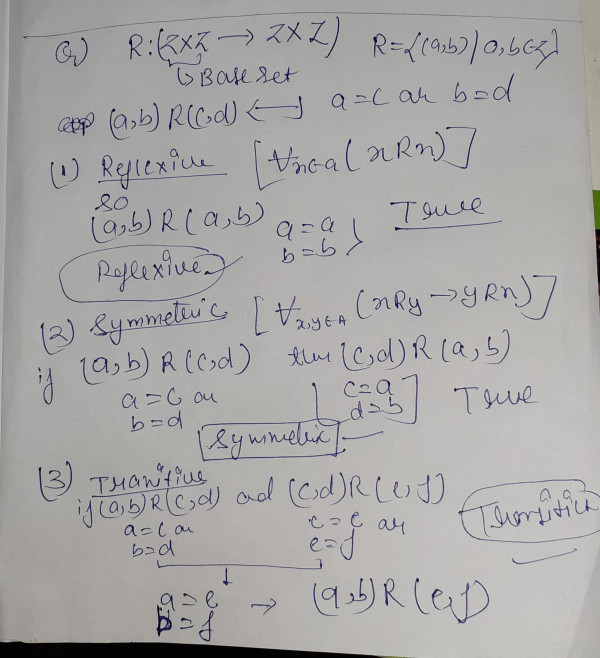 Q) R:(Z×Z → Z×Z) R={(a,b)|a,b∈Z}
↳ Base set
(a,b) R(c,d) ⟷ a=c or b=d
(1) Reflexive [∀x∈a(xRx)]
so
(a,b)R(a,b) a=a b=b } True
Reflexive
(2) Symmetric [∀x,y∈A (xRy → yRx)]
if (a,b) R(c,d) then (c,d)R(a,b)
a=c or c=a
b=d d=b True
Symmetric
(3) Tranitive
if (a,b)R(c,d) ad (c,d)R(e,f) Transitive
a=c or c=e or
b=d e=f
a=e
b=f → (a,b)R(e,f)